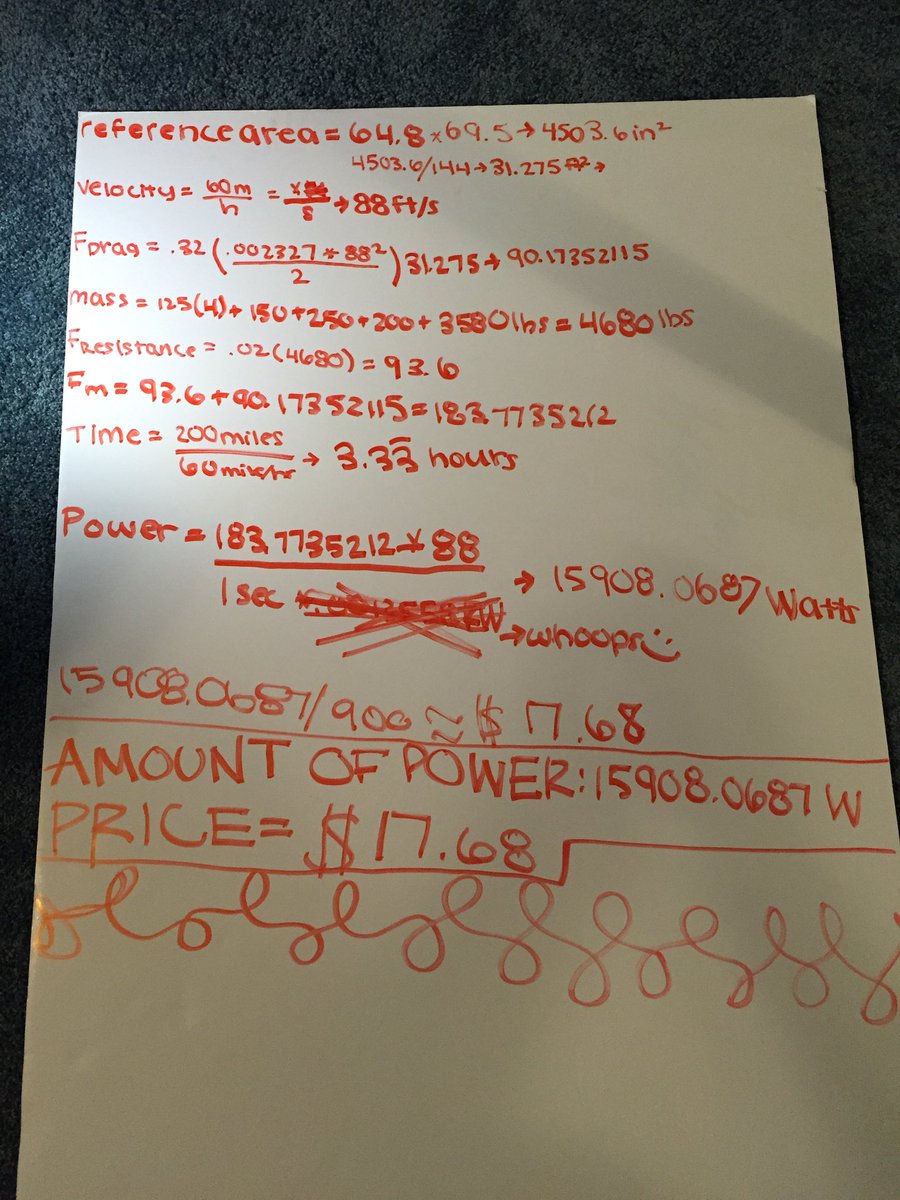 reference area = 64.8 × 69.5 → 4503.6 in²
4503.6/144 → 31.275 ft² →
Velocity = 60m/h = /s → 88 ft/s
FDrag = .32 (.002327 * 88²/2) 31.275 → 90.17352115
mass = 125(4) + 150 + 250 + 200 + 3580 lbs = 4680 lbs
FResistance = .02(4680) = 93.6
Fm = 93.6 + 90.17352115 = 183.7735212
Time = 200 miles/60 miles/hr → 3.33̅ hours
Power = 183.7735212 * 88/1 sec → 15908.0687 Watts
→ whoops :)
15908.0687/900 ≈ $17.68
AMOUNT OF POWER: 15908.0687 W
PRICE = $17.68